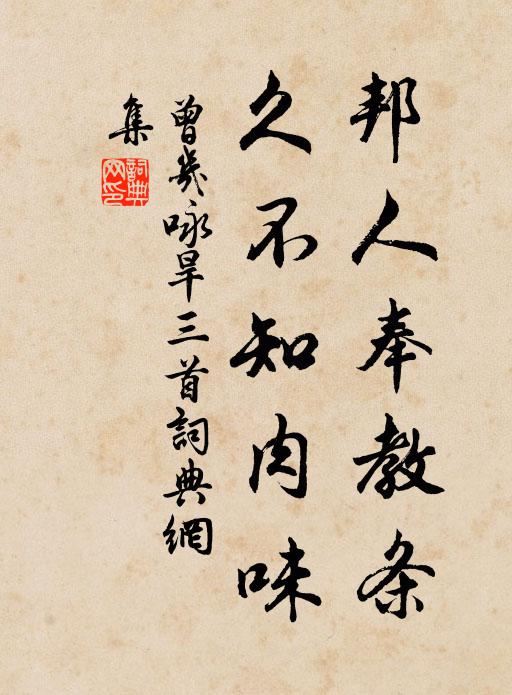 邦人奉教条
久不知肉味
曾幾咏旱三首詞典網
集
詞典
网印